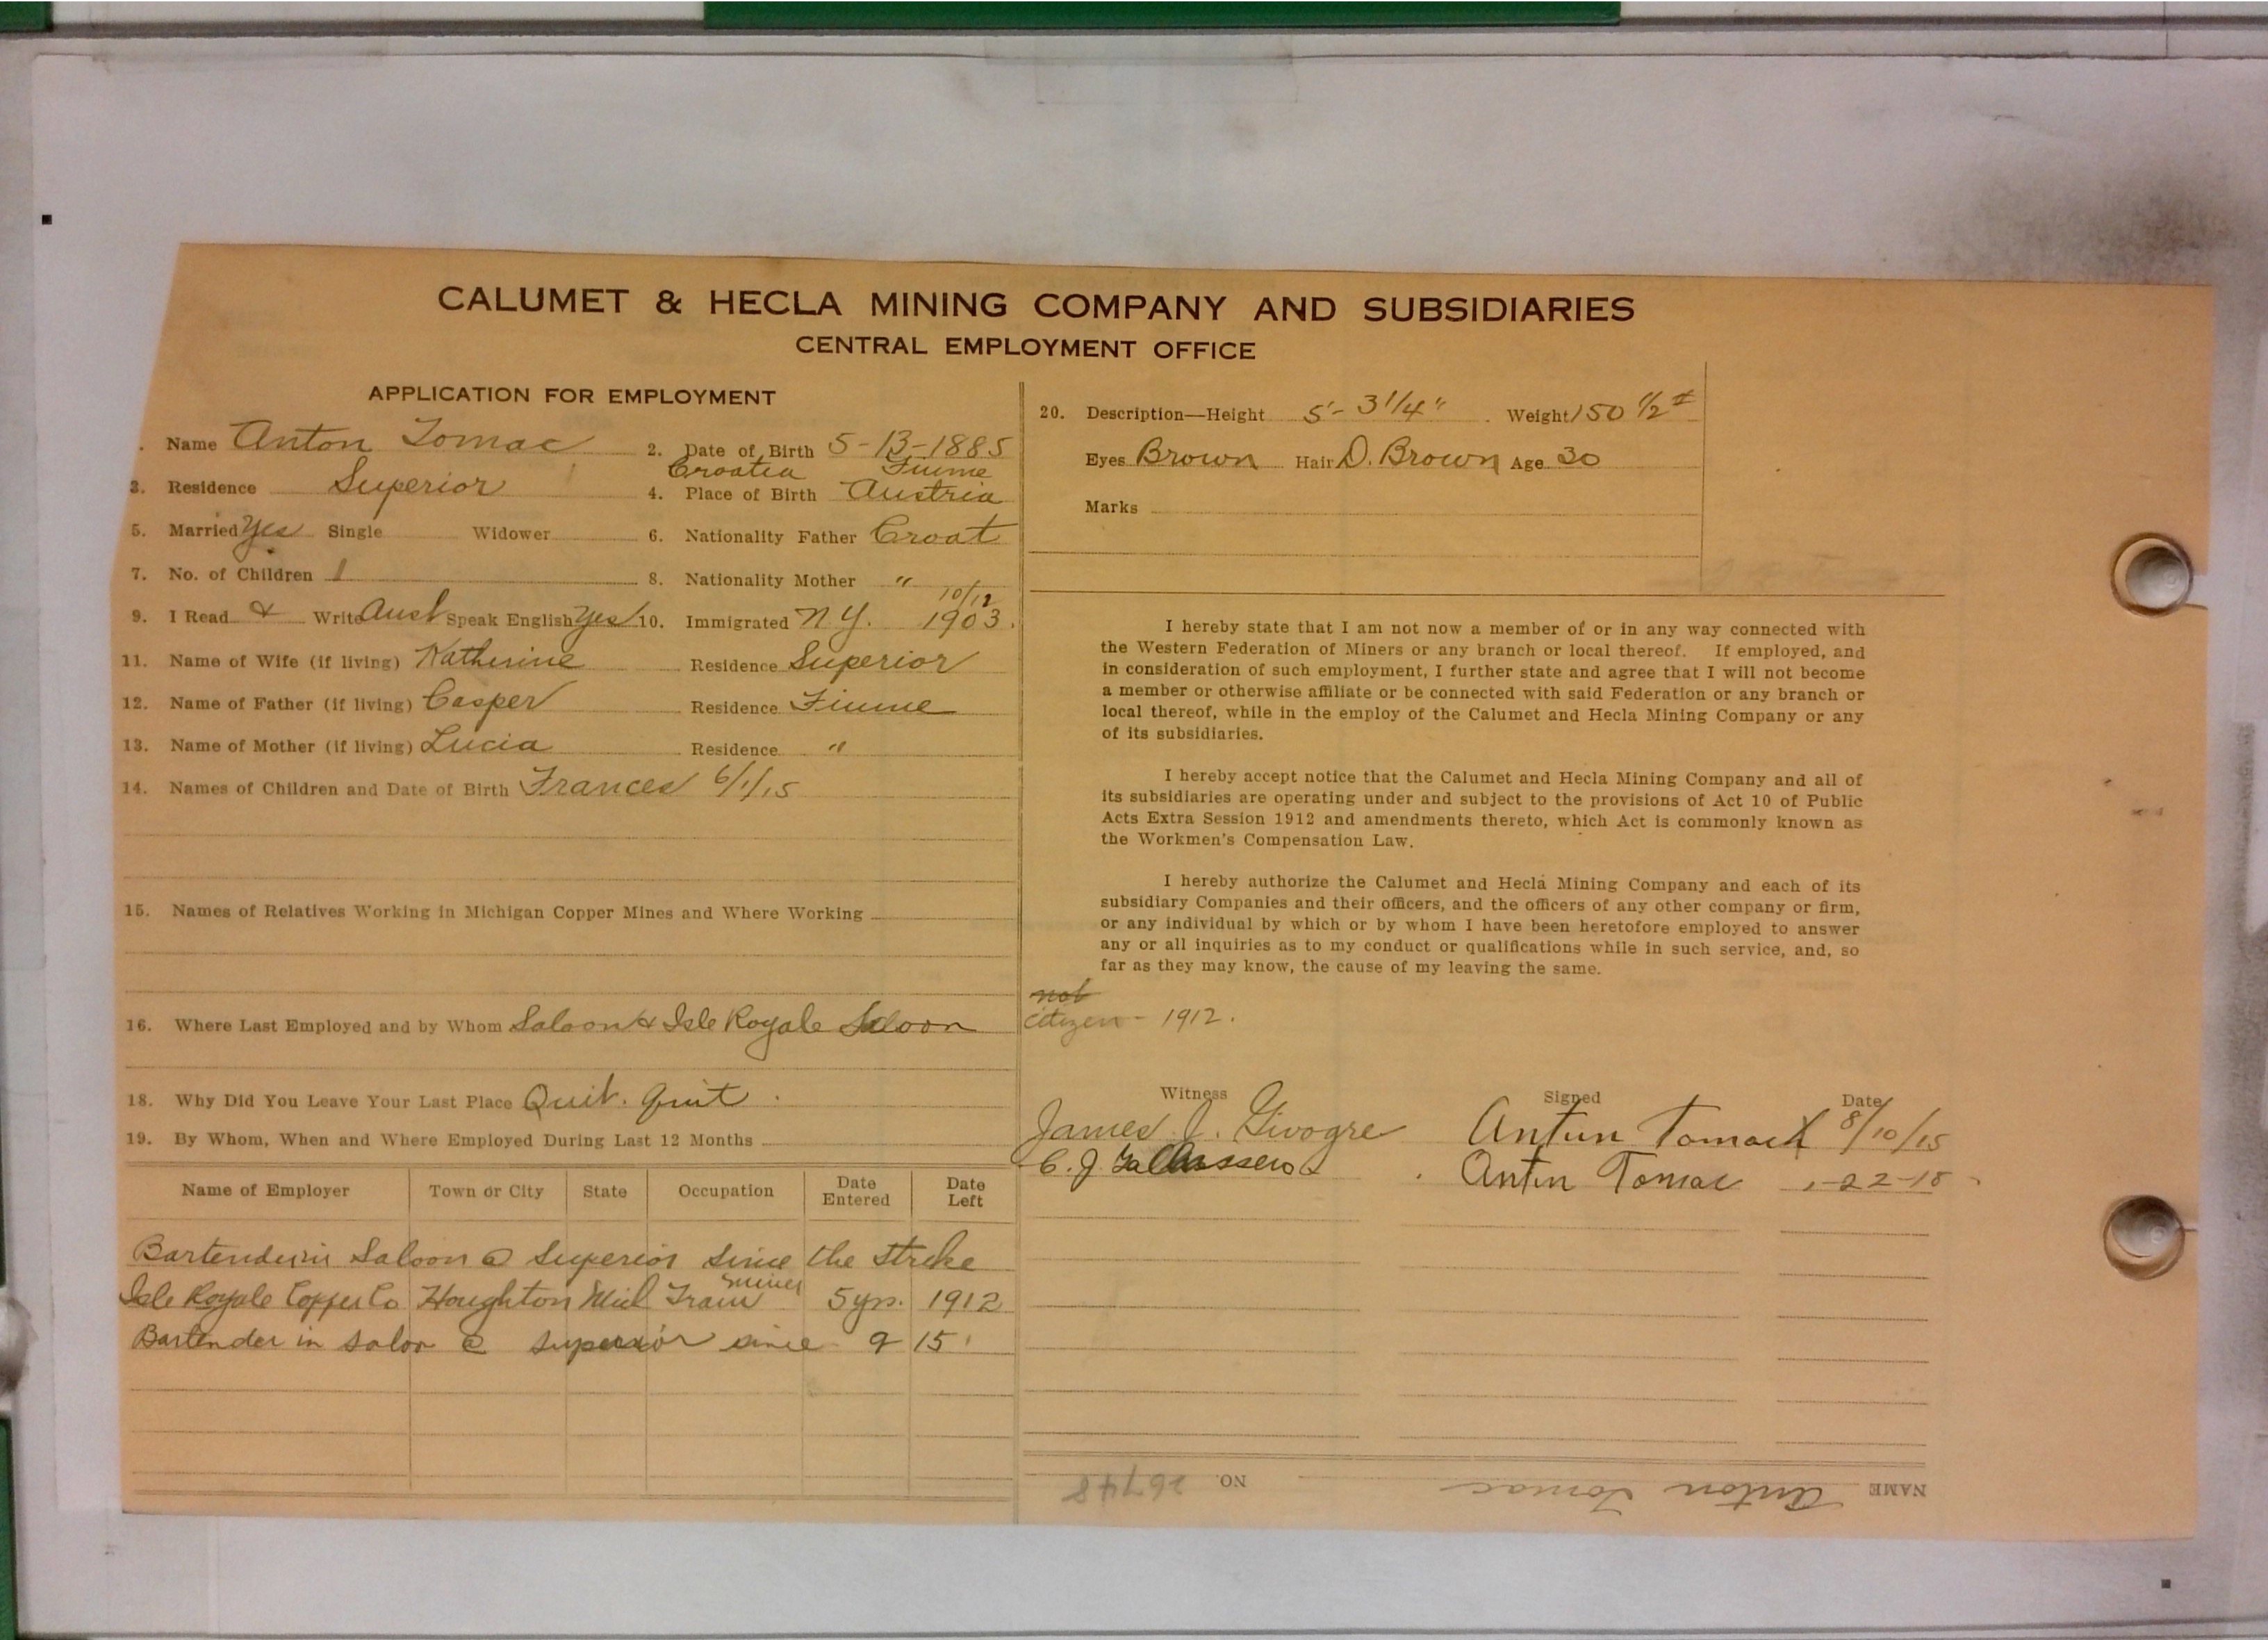 CALUMET & HECLA MINING COMPANY AND SUBSIDIARIES
CENTRAL EMPLOYMENT OFFICE
APPLICATION FOR EMPLOYMENT
. Name Anton Tomac 2. Date of Birth 5-13-1885
Croatia Fiume
3. Residence Superior 4. Place of Birth Austria
5. Married Yes Single Widower 6. Nationality Father Croat
7. No. of Children 1 8. Nationality Mother "
10/12
9. I Read & Write Aust Speak English Yes 10. Immigrated N.Y. 1903.
11. Name of Wife (if living) Katherine Residence Superior
12. Name of Father (if living) Casper Residence Fiume
13. Name of Mother (if living) Lucia Residence "
14. Names of Children and Date of Birth Frances 6/1/15
15. Names of Relatives Working in Michigan Copper Mines and Where Working
16. Where Last Employed and by Whom Saloon & Isle Royale Saloon
18. Why Did You Leave Your Last Place Quit. Quit.
19. By Whom, When and Where Employed During Last 12 Months
Name of Employer Town or City State Occupation Date Entered Date Left
Bartender in Saloon @ Superior since the Strike
miner
Isle Royale Copper Co Houghton Mich Tram 5 yrs. 1912
Bartender in saloon @ superior since 9 15
20. Description—Height 5'- 3 1/4" Weight 150 1/2 #
Eyes Brown Hair D. Brown Age 30
Marks
I hereby state that I am not now a member of or in any way connected with
the Western Federation of Miners or any branch or local thereof. If employed, and
in consideration of such employment, I further state and agree that I will not become
a member or otherwise affiliate or be connected with said Federation or any branch or
local thereof, while in the employ of the Calumet and Hecla Mining Company or any
of its subsidiaries.
I hereby accept notice that the Calumet and Hecla Mining Company and all of
its subsidiaries are operating under and subject to the provisions of Act 10 of Public
Acts Extra Session 1912 and amendments thereto, which Act is commonly known as
the Workmen's Compensation Law.
I hereby authorize the Calumet and Hecla Mining Company and each of its
subsidiary Companies and their officers, and the officers of any other company or firm,
or any individual by which or by whom I have been heretofore employed to answer
any or all inquiries as to my conduct or qualifications while in such service, and, so
far as they may know, the cause of my leaving the same.
not
citizen - 1912.
Witness Signed Date
James J. Givogre Antun Tomac 8/10/15
C. J. Antun Tomac 1-22-18
NAME Anton Tomac NO. 26748